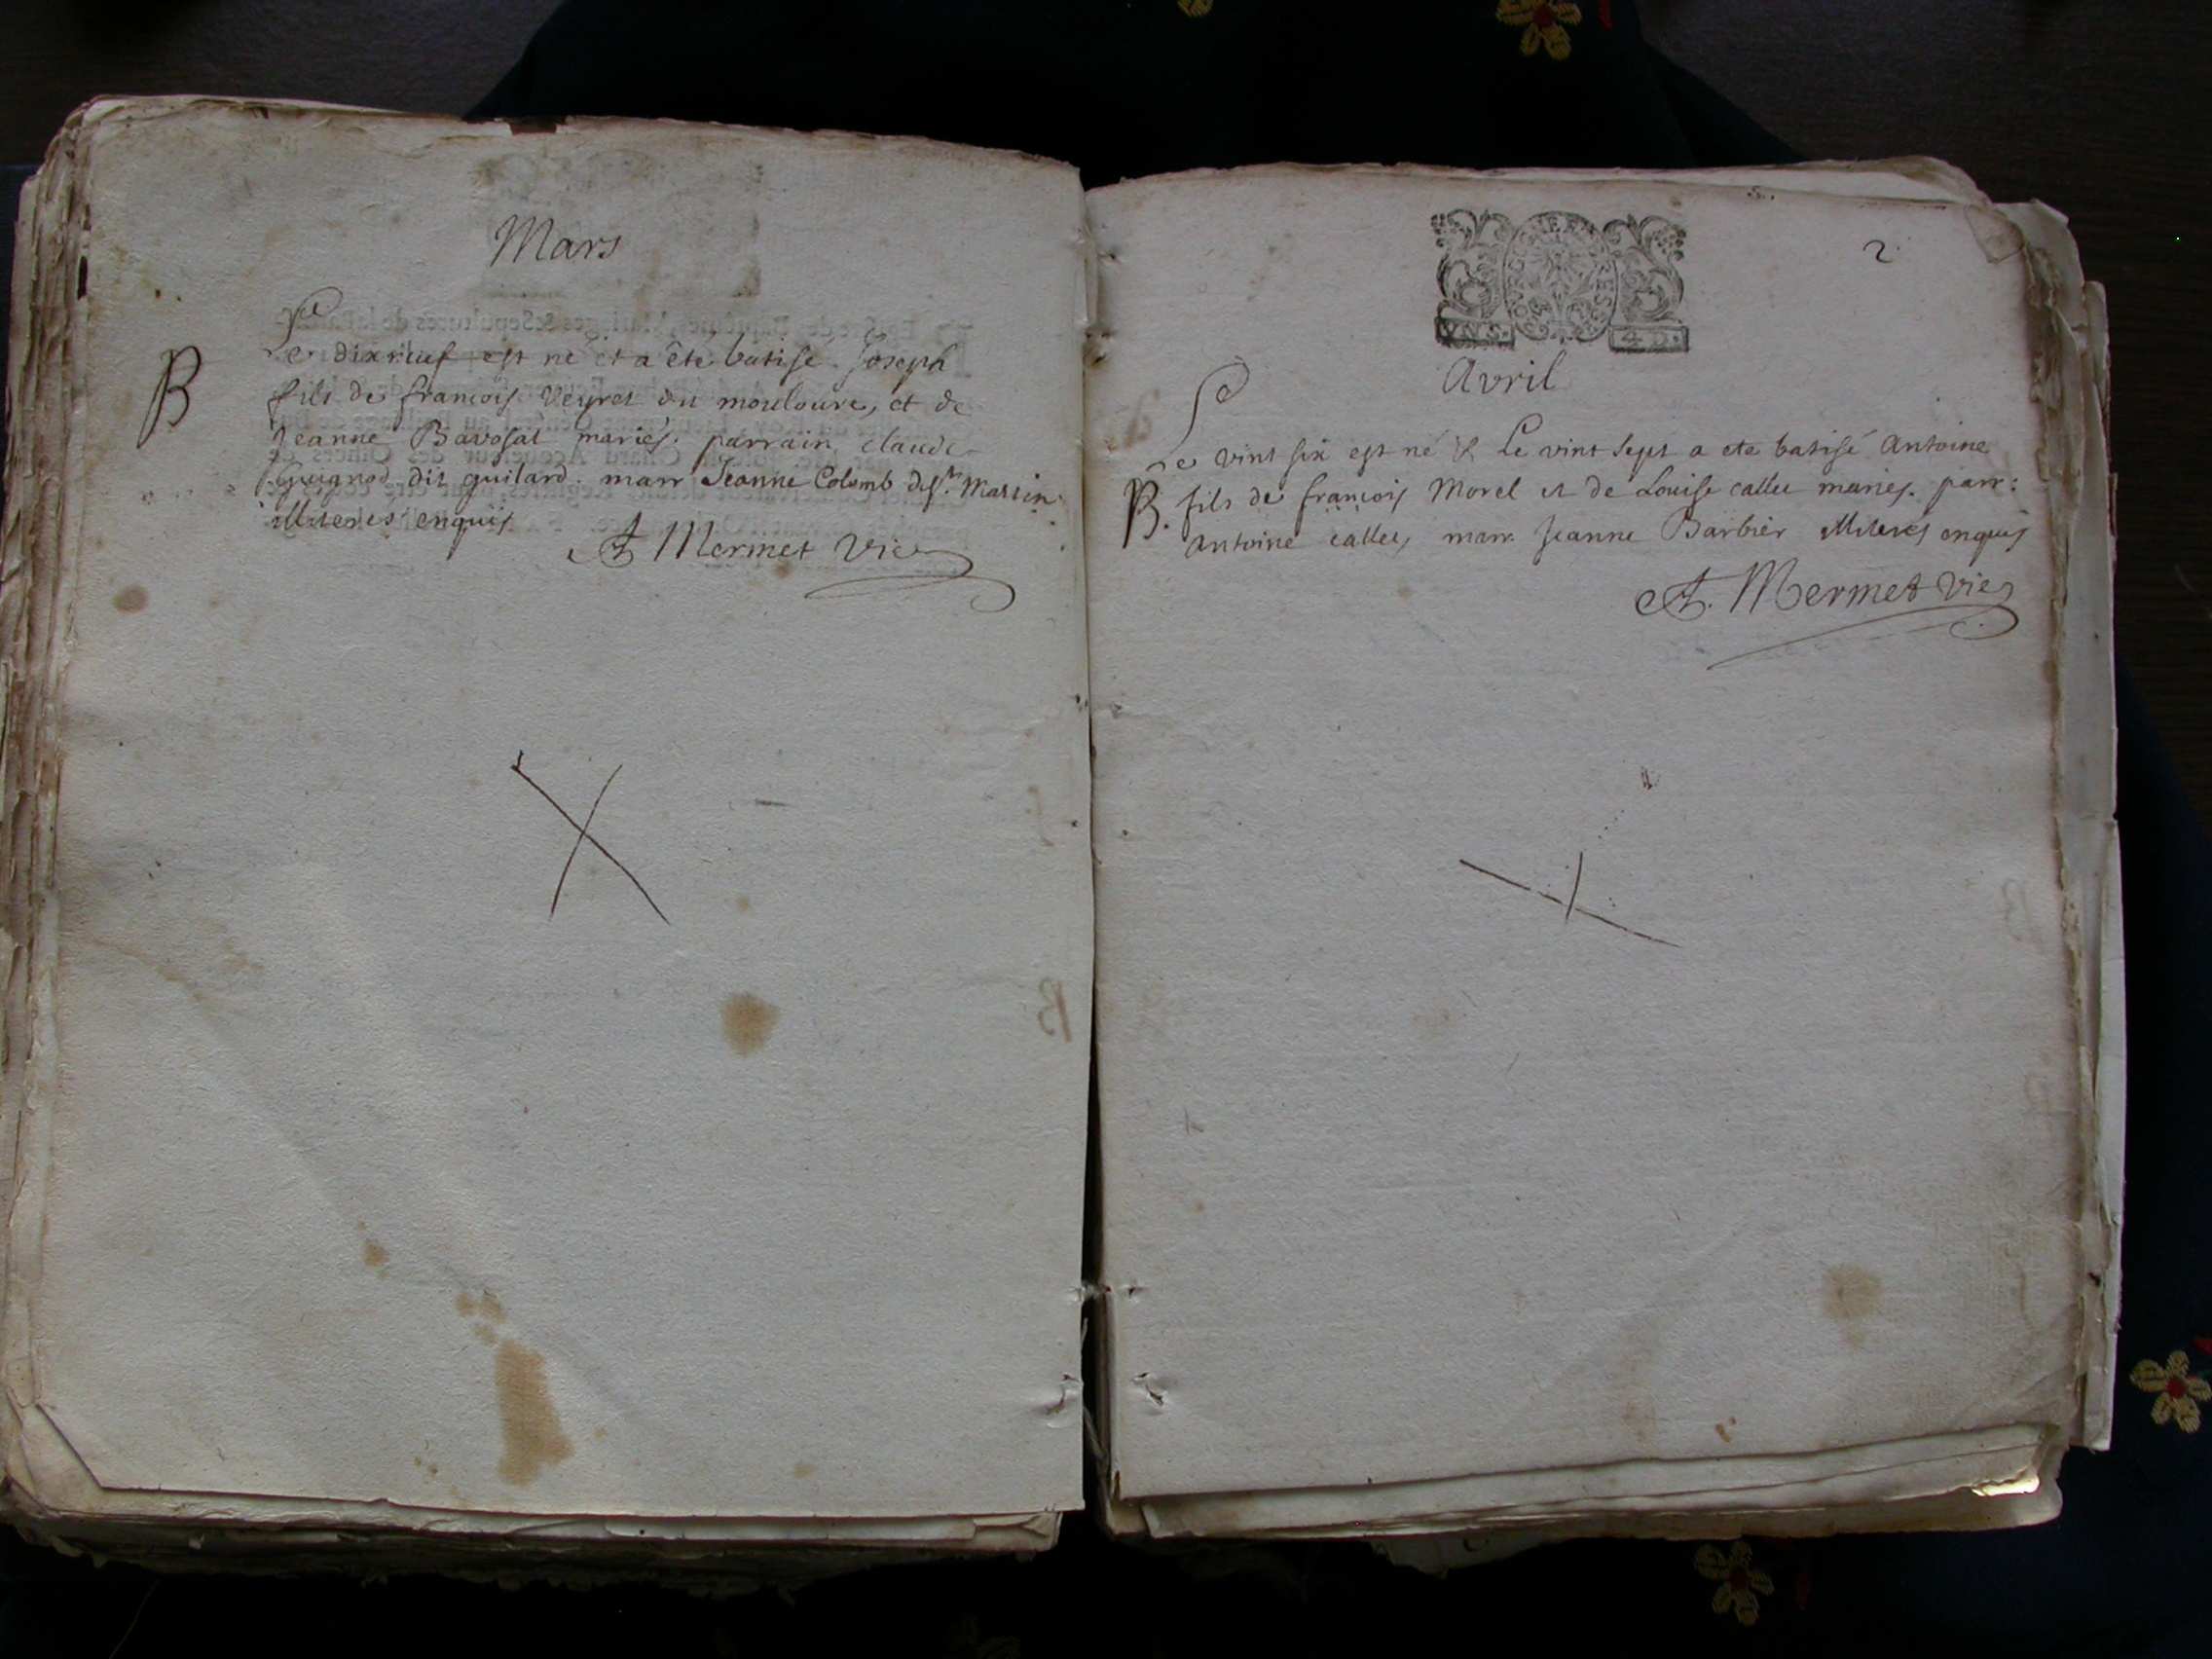 Mars
Le dixneuf est né et a été batisé Joseph
B
fils de françois Veyret du mouloure, et de
Jeanne Bavosat mariés. parrain claude
Guignod dit guilard. marr Jeanne Colomb de st. Martin
illiteres enquis
A Mermet Vic
2
VN S.
4 D.
Avril
Le vint six est né & Le vint sept a eté batisé Antoine
B. fils de françois Morel et de Louise callet mariés. parr:
Antoine callet, marr Jeanne Barbier illiterés enquis
A. Mermet vic